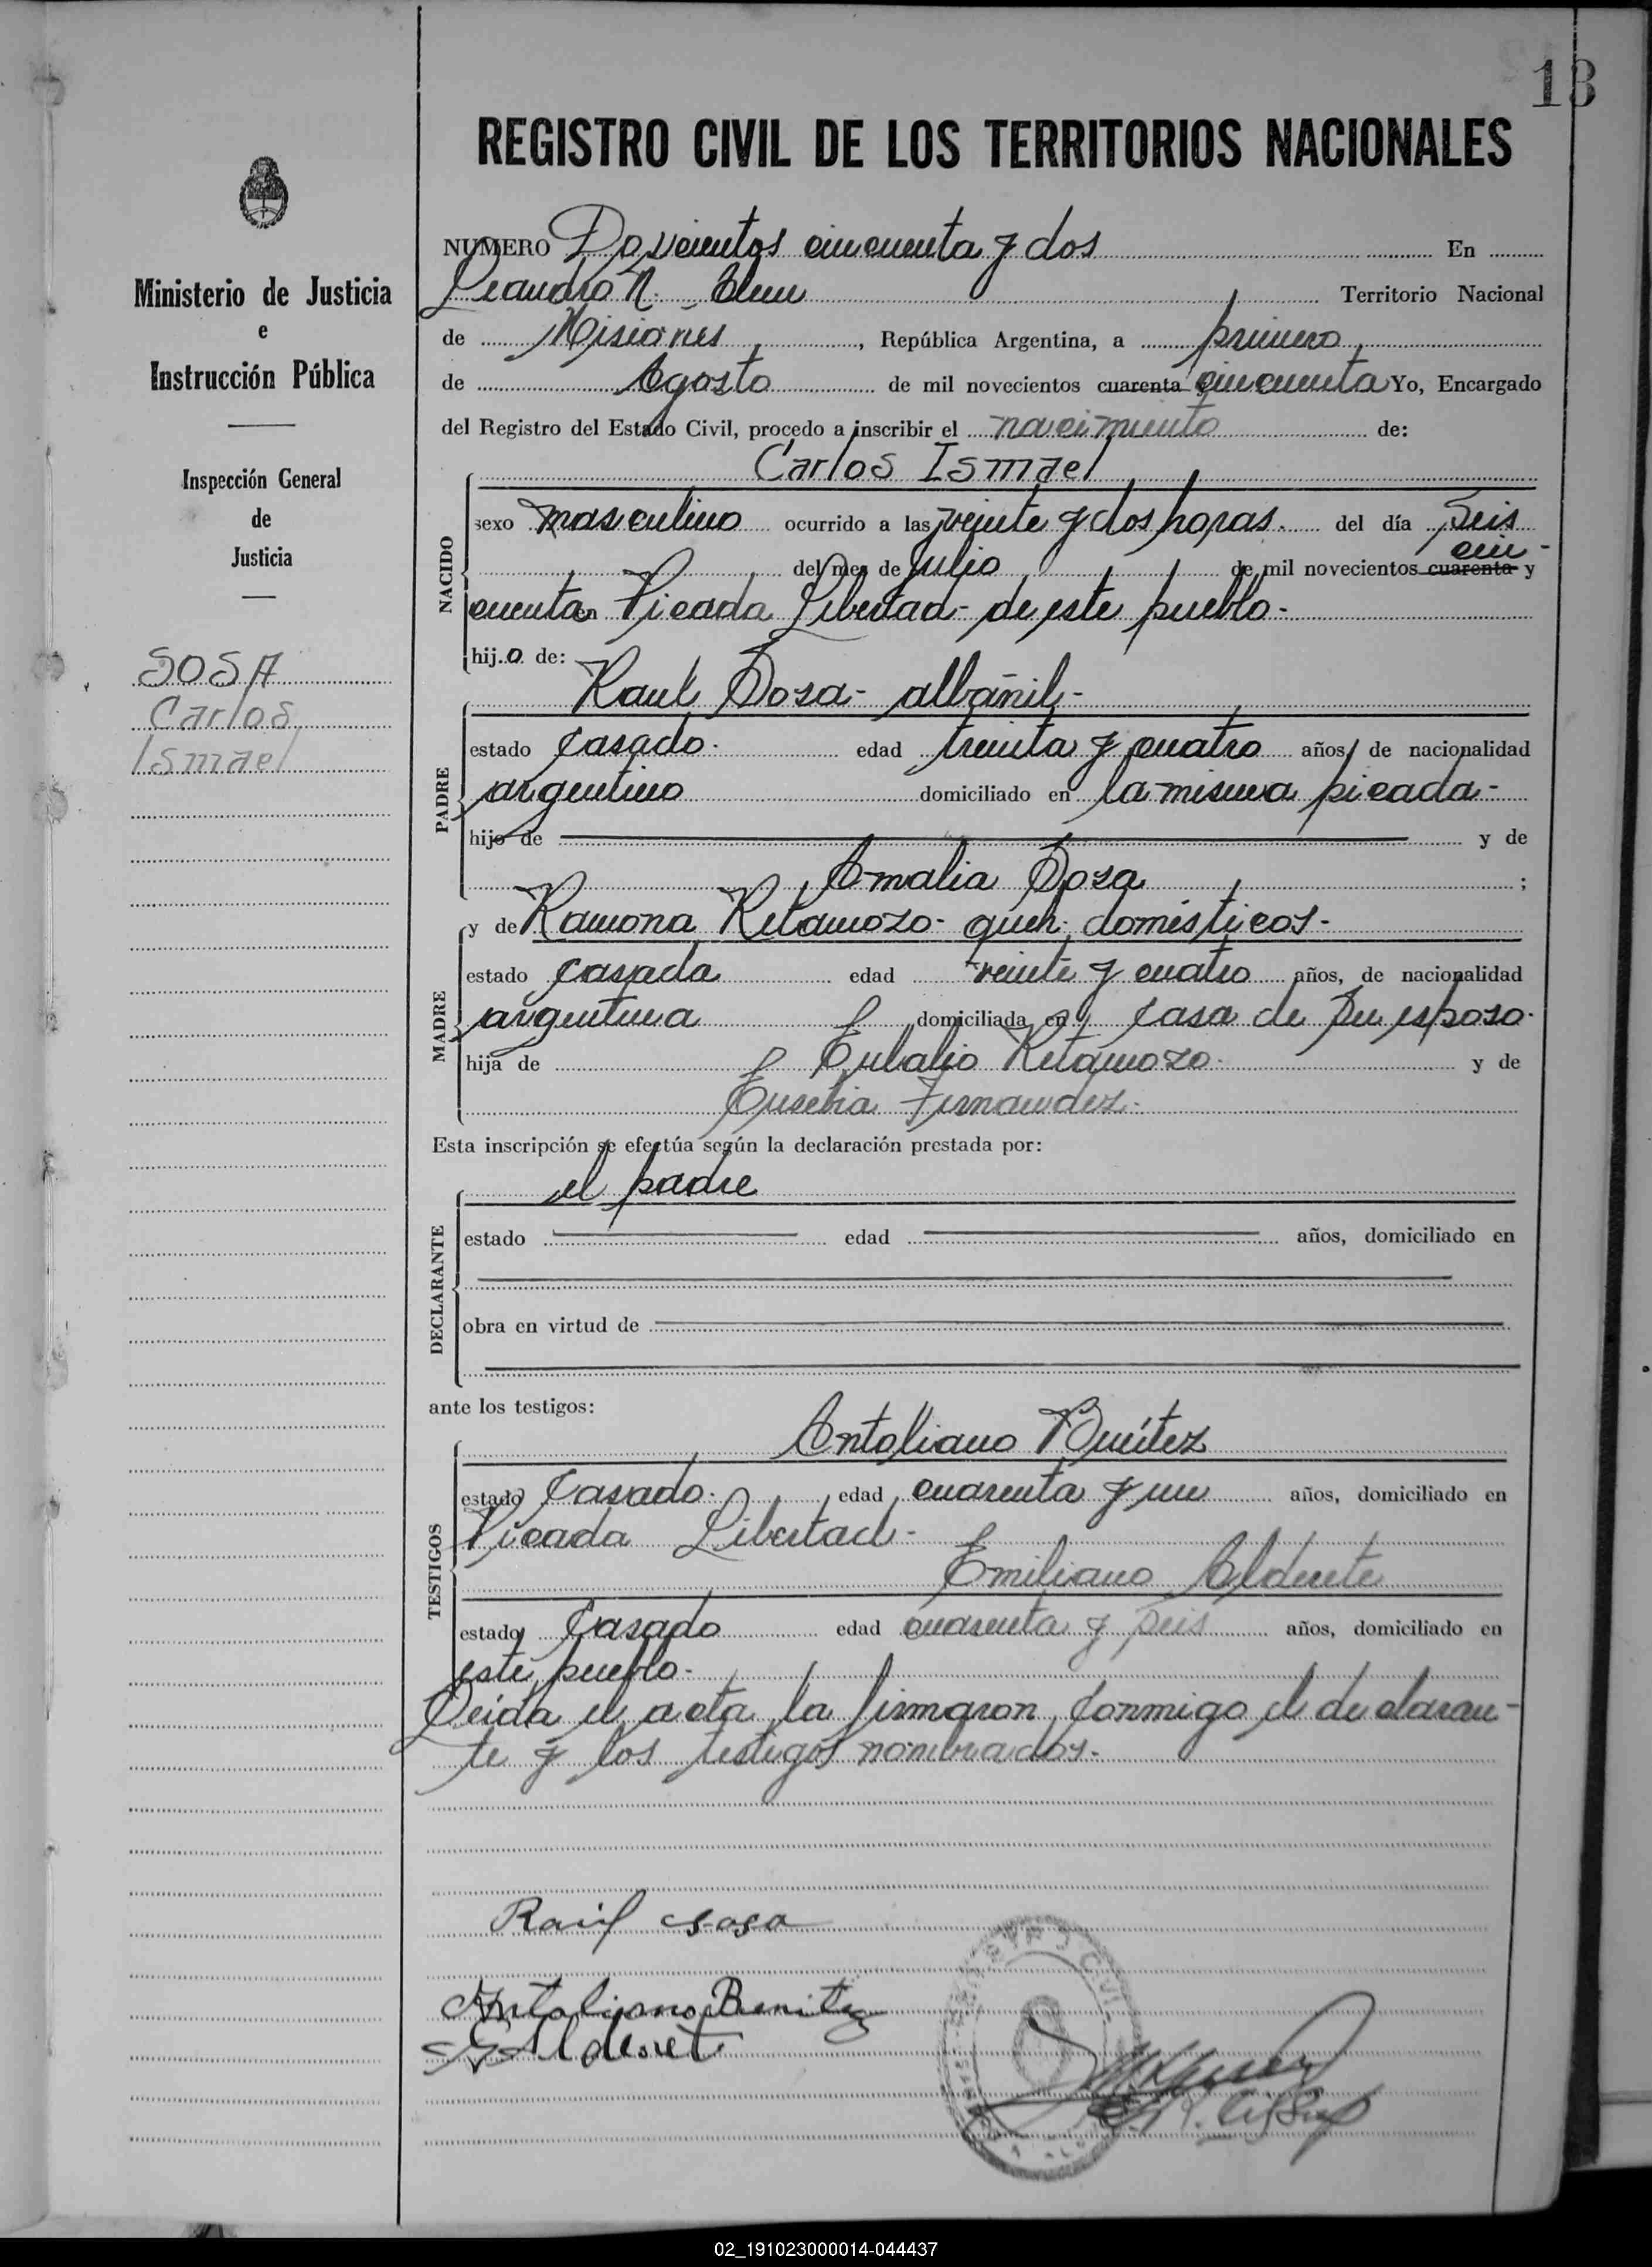 13
REGISTRO CIVIL DE LOS TERRITORIOS NACIONALES
Ministerio de Justicia
e
Instrucción Pública
Inspección General
de
Justicia
SOSA
Carlos
Ismael
NUMERO Doscientos cincuenta y dos En
Leandro N. Alem Territorio Nacional
de Misiones, República Argentina, a primero
de Agosto de mil novecientos cuarenta y cincuenta Yo, Encargado
del Registro del Estado Civil, procedo a inscribir el nacimiento de:
Carlos Ismael
NACIDO
sexo masculino ocurrido a las veinte y dos horas. del día Seis
del mes de Julio de mil novecientos cuarenta y cin-
cuenta en Picada Libertad - de este pueblo -
hijo de:
PADRE
Raul Sosa - albañil -
estado Casado. edad treinta y cuatro años, de nacionalidad
argentino domiciliado en la misma picada -
hijo de y de
Amalia Sosa ;
MADRE
y de Ramona Retamozo - queh. domésticos -
estado casada edad veinte y cuatro años, de nacionalidad
argentina domiciliada en casa de su esposo.
hija de Eulalio Retamozo. y de
Eusebia Fernandez.
Esta inscripción se efectúa según la declaración prestada por:
DECLARANTE
el padre
estado edad años, domiciliado en
obra en virtud de
ante los testigos:
TESTIGOS
Antoliano Benítez
estado Casado. edad cuarenta y un años, domiciliado en
Picada Libertad -
Emiliano Alderete
estado Casado edad cuarenta y seis años, domiciliado en
este pueblo -
Leída el acta, la firmaron conmigo el declaran-
te y los testigos nombrados -
Raúl Sosa
Antoliano Benitez
E Alderet
02_191023000014-044437